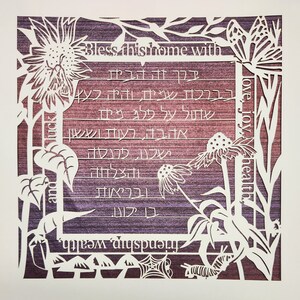 Bless this home with
love, joy, health,
friendship, wealth
and luck
יברך זה הבית
בברכת שמים והיה כעץ
שתול על פלגי מים
אהבה, רעות וששון
שלום, פרנסה
והצלחה
ובריאות
בו ילונו.